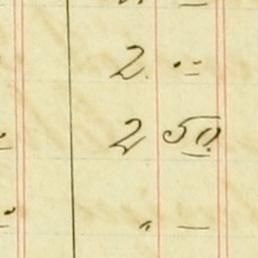 2. "
2 50.
" —